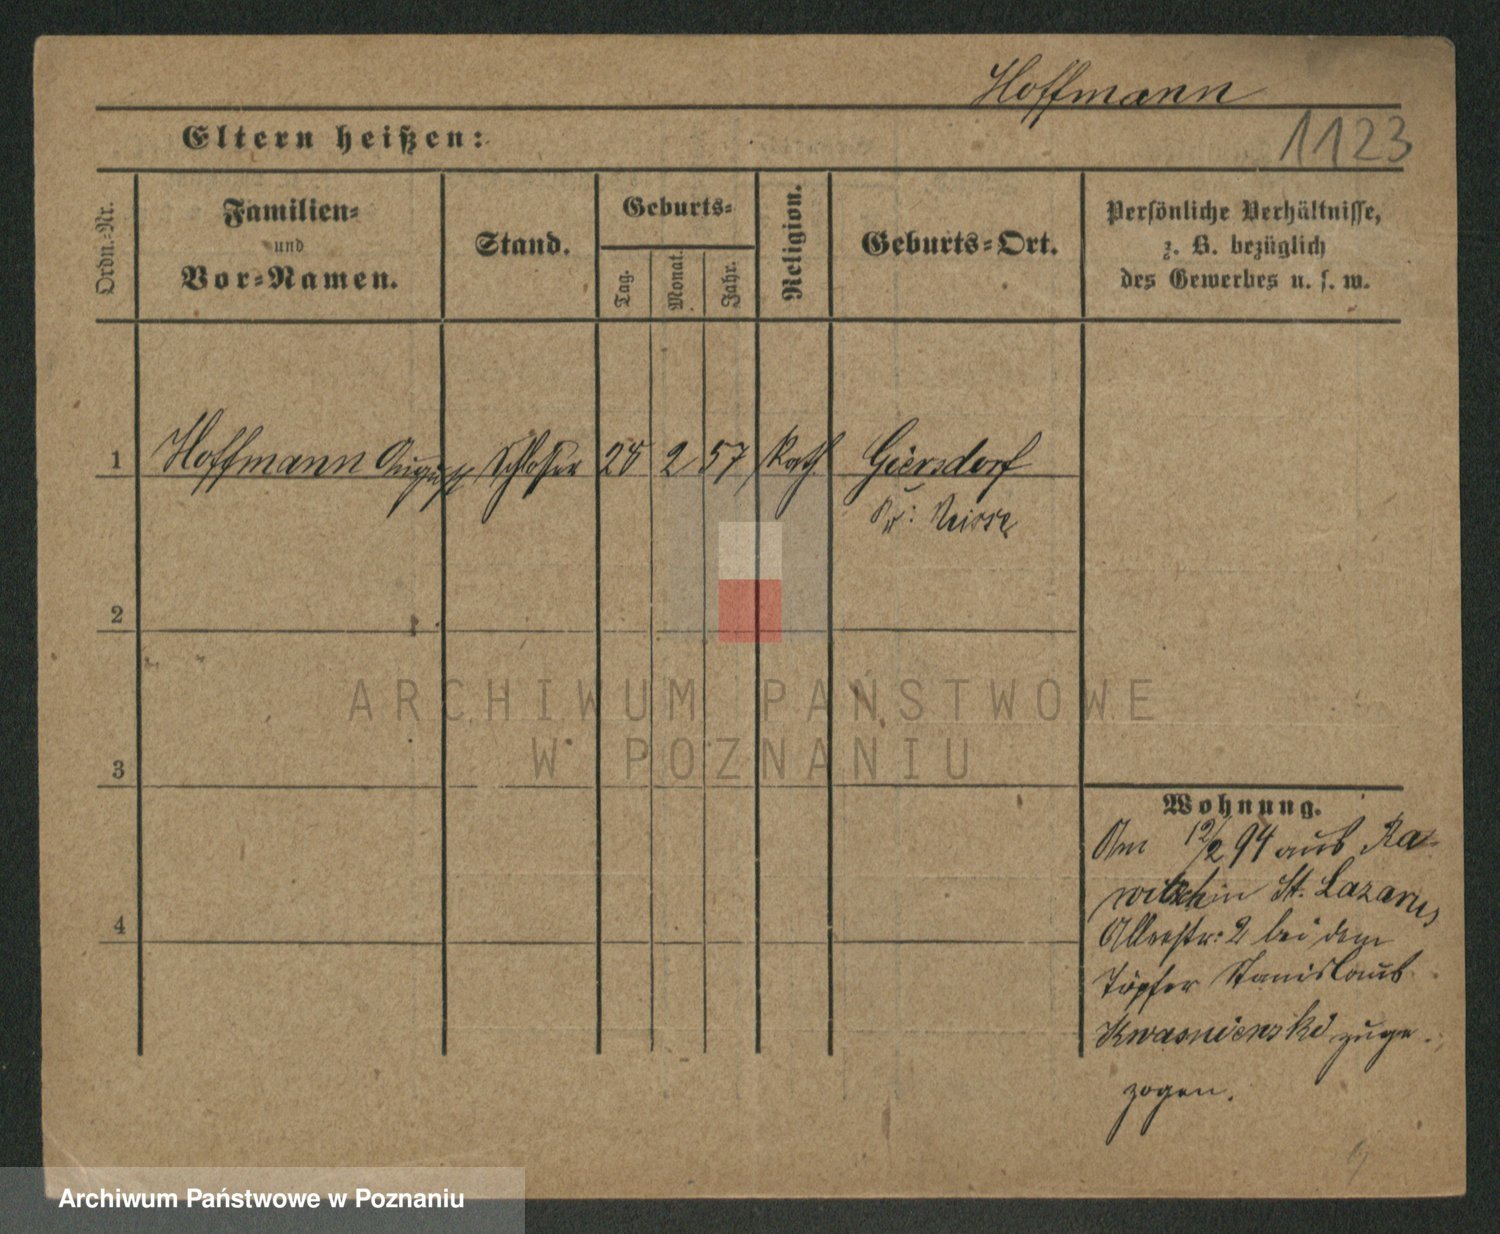 Hoffmann
1123
Eltern heißen:
Ordn.-Nr.
Familien-
und
Vor-Namen.
Stand.
Geburts-
Tag.
Monat.
Jahr.
Religion.
Geburts-Ort.
Persönliche Verhältnisse,
z. B. bezüglich
des Gewerbes u. s. w.
1 Hoffmann August Schlosser 25 2 57 Kath Giersdorf
Kr: Neisse
2
3
4
Wohnung.
Am 12/2 94 aus Ra-
witsch in St. Lazarus
Alleestr: 2 bei dem
Töpfer Stanislaus
Kwasnienski zuge-
zogen.
ARCHIWUM PAŃSTWOWE
W POZNANIU
Archiwum Państwowe w Poznaniu